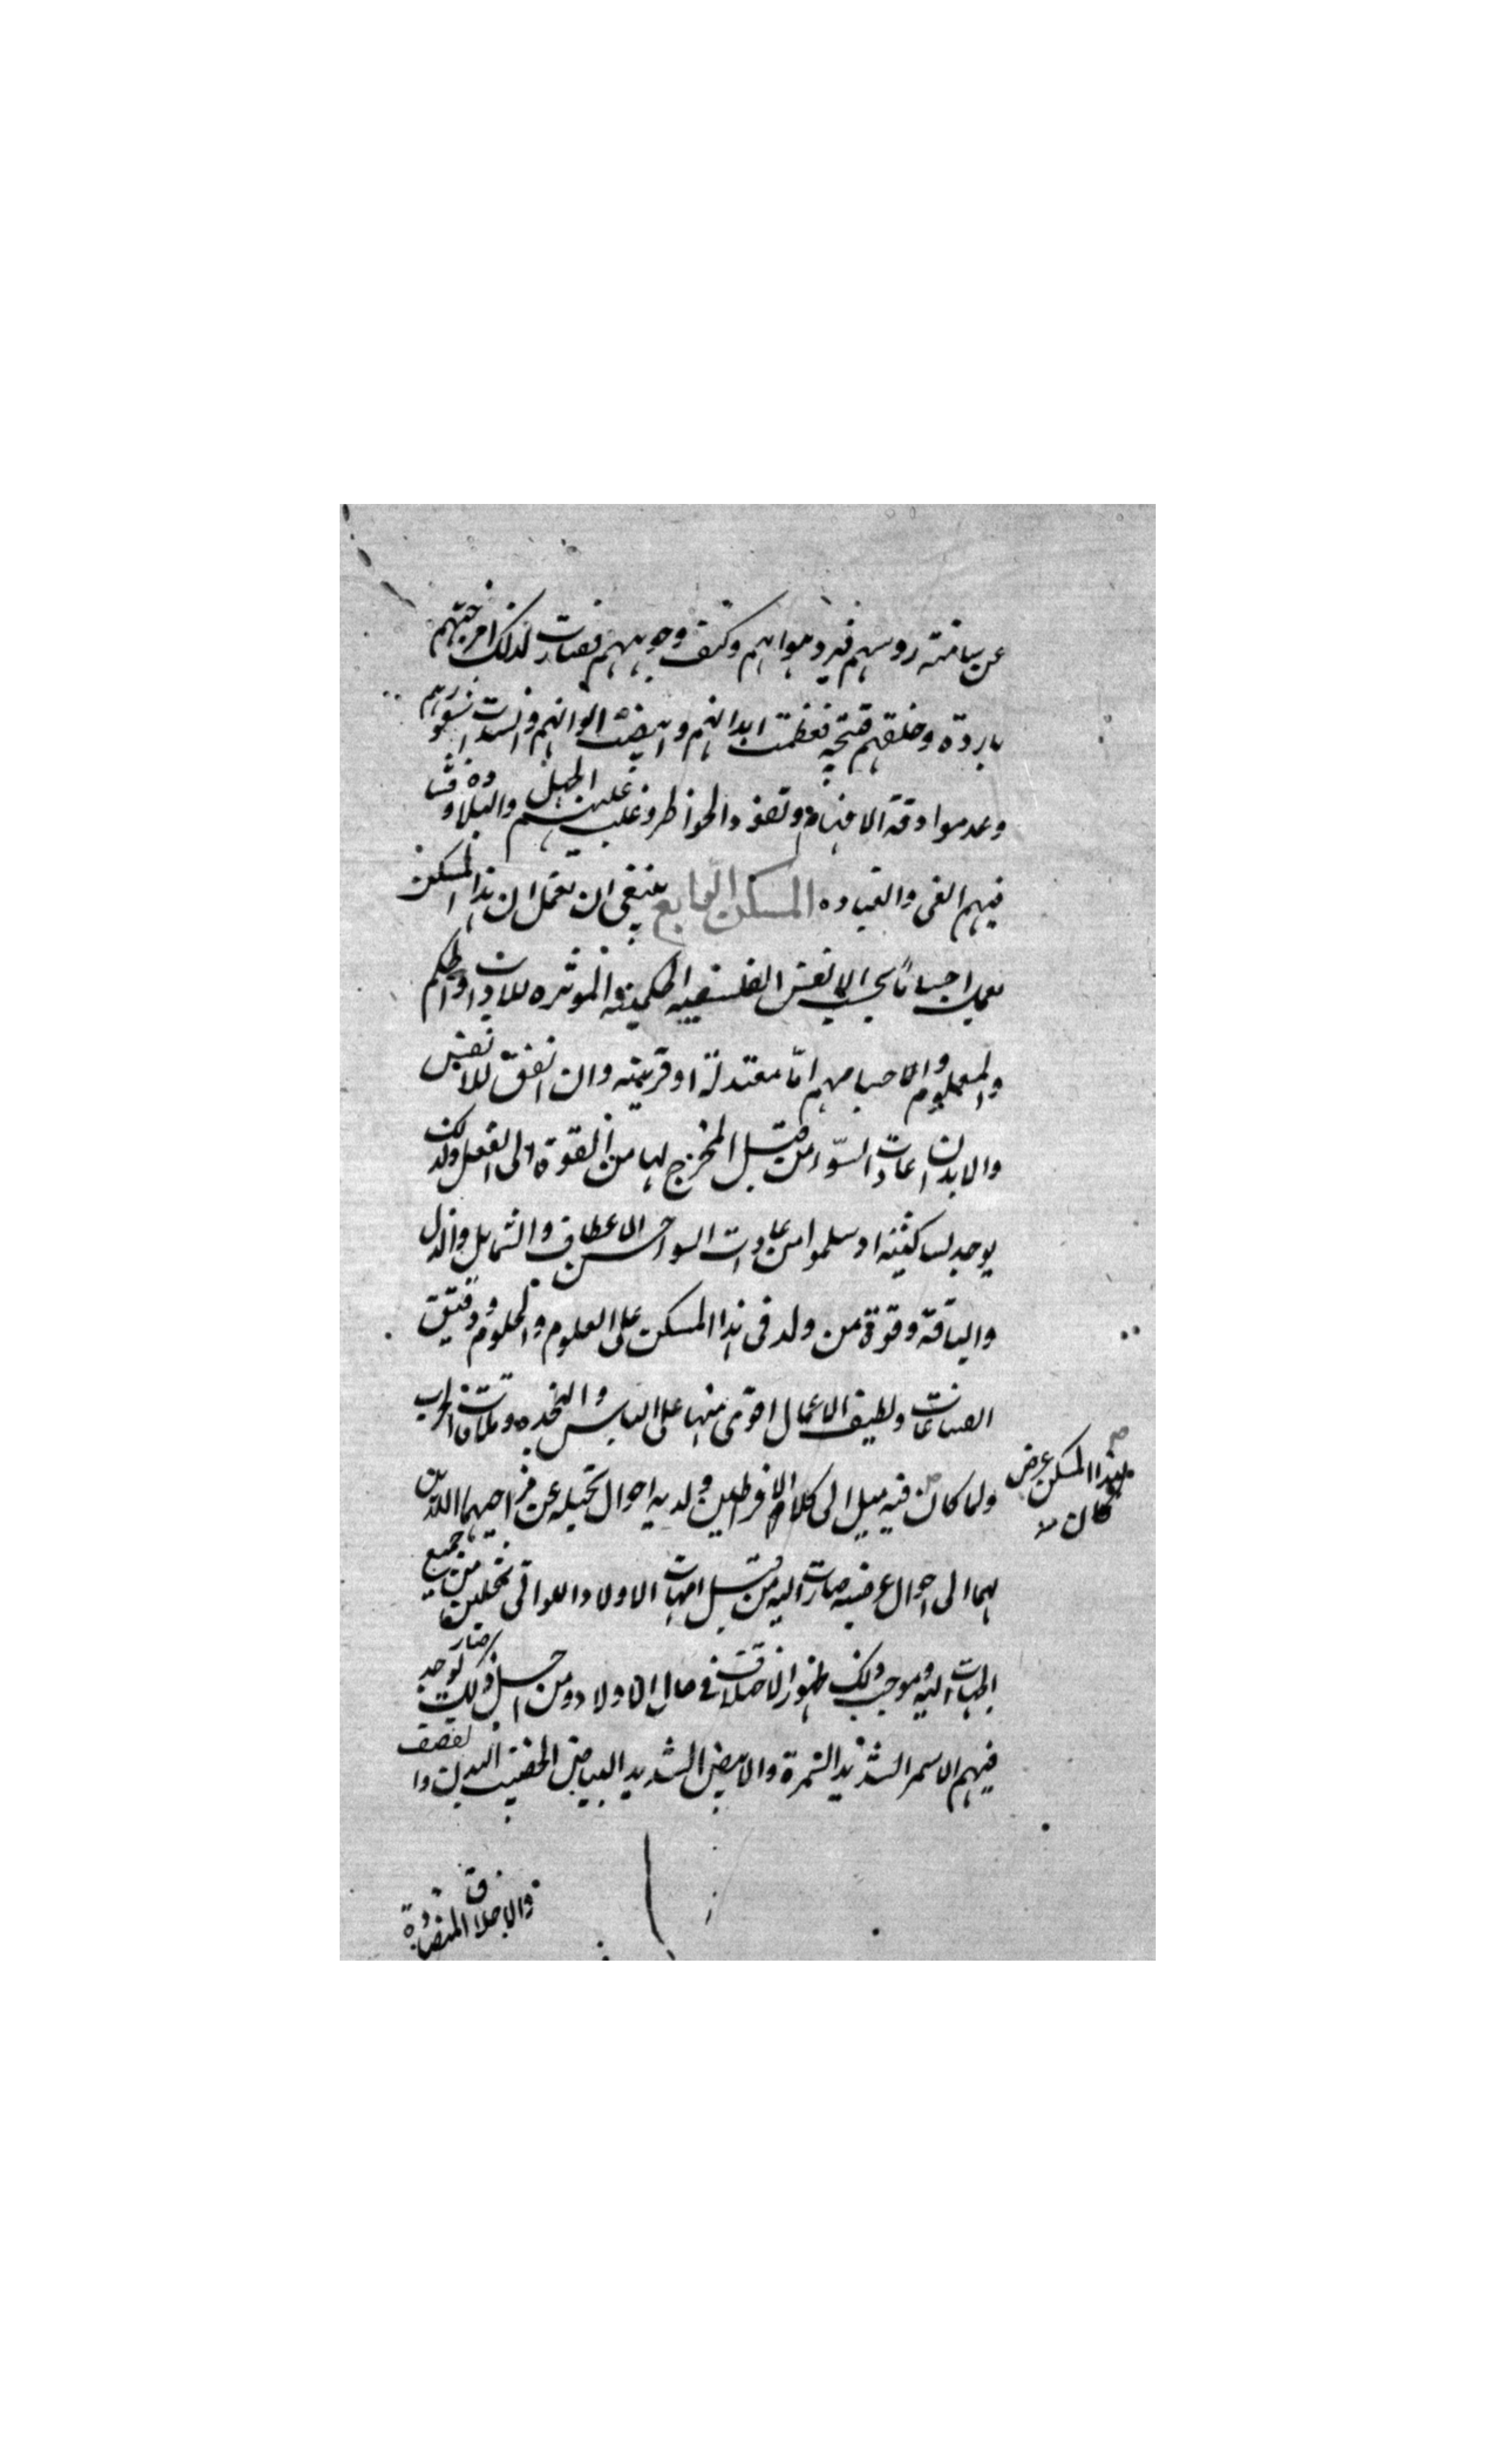 عن سامتة روسهم فبرد هواهم وكثف وجوههم فصارت لذلك امزجتهم
باردة وخلقهم فجة فعظمت ابدانهم وابيضت الوانهم وانسدلت شعورهم
وعدموا دقة الافهام ونفوذ الخواطر وغلب عليهم الجهل والبلادة وفشا
فيهم الغي والغباوه المسكن الرابع ينبغي ان تعمل ان هذا المسكن
اجساما بحسب الانفس الفلسفيه الحكمية والموثره للاداب والحكم
والعلوم والاجسام هم اما معتدلة او قريبة وان اتفق للانفس
والابدان عادات السوء من قبل المخرج لها من القوة الى الفعل ولذلك
يوجد لساكنيه اذ سلموا من عادات السو احسن الاعطاف والشمايل والدل
واللباقة وقوة من ولد في هذا المسكن على العلوم والحلوم ودقيق
الصناعات ولطيف الاعمال اقوى منها على الباس والنجده وملاقات الحراب
ولما كان فيه ميل الى كلام الافراطين ولديه احوال تحيله عن مزاجيهما اللذين
لهما الى احوال عرضيه صارت اليه من قبل امهات الاولاد اللواتي تحملن من جميع
الجهات اليه وموجب ذلك ظهور الاختلاف في حال الاولاد ومن اجل ذلك صار يوجد
فيهم الاسمر الشديد السمرة والابيض الشديد البياض الخفيف البدن والقصف
لهذا المسكن عرض
كان
والاخلاق المتضادة